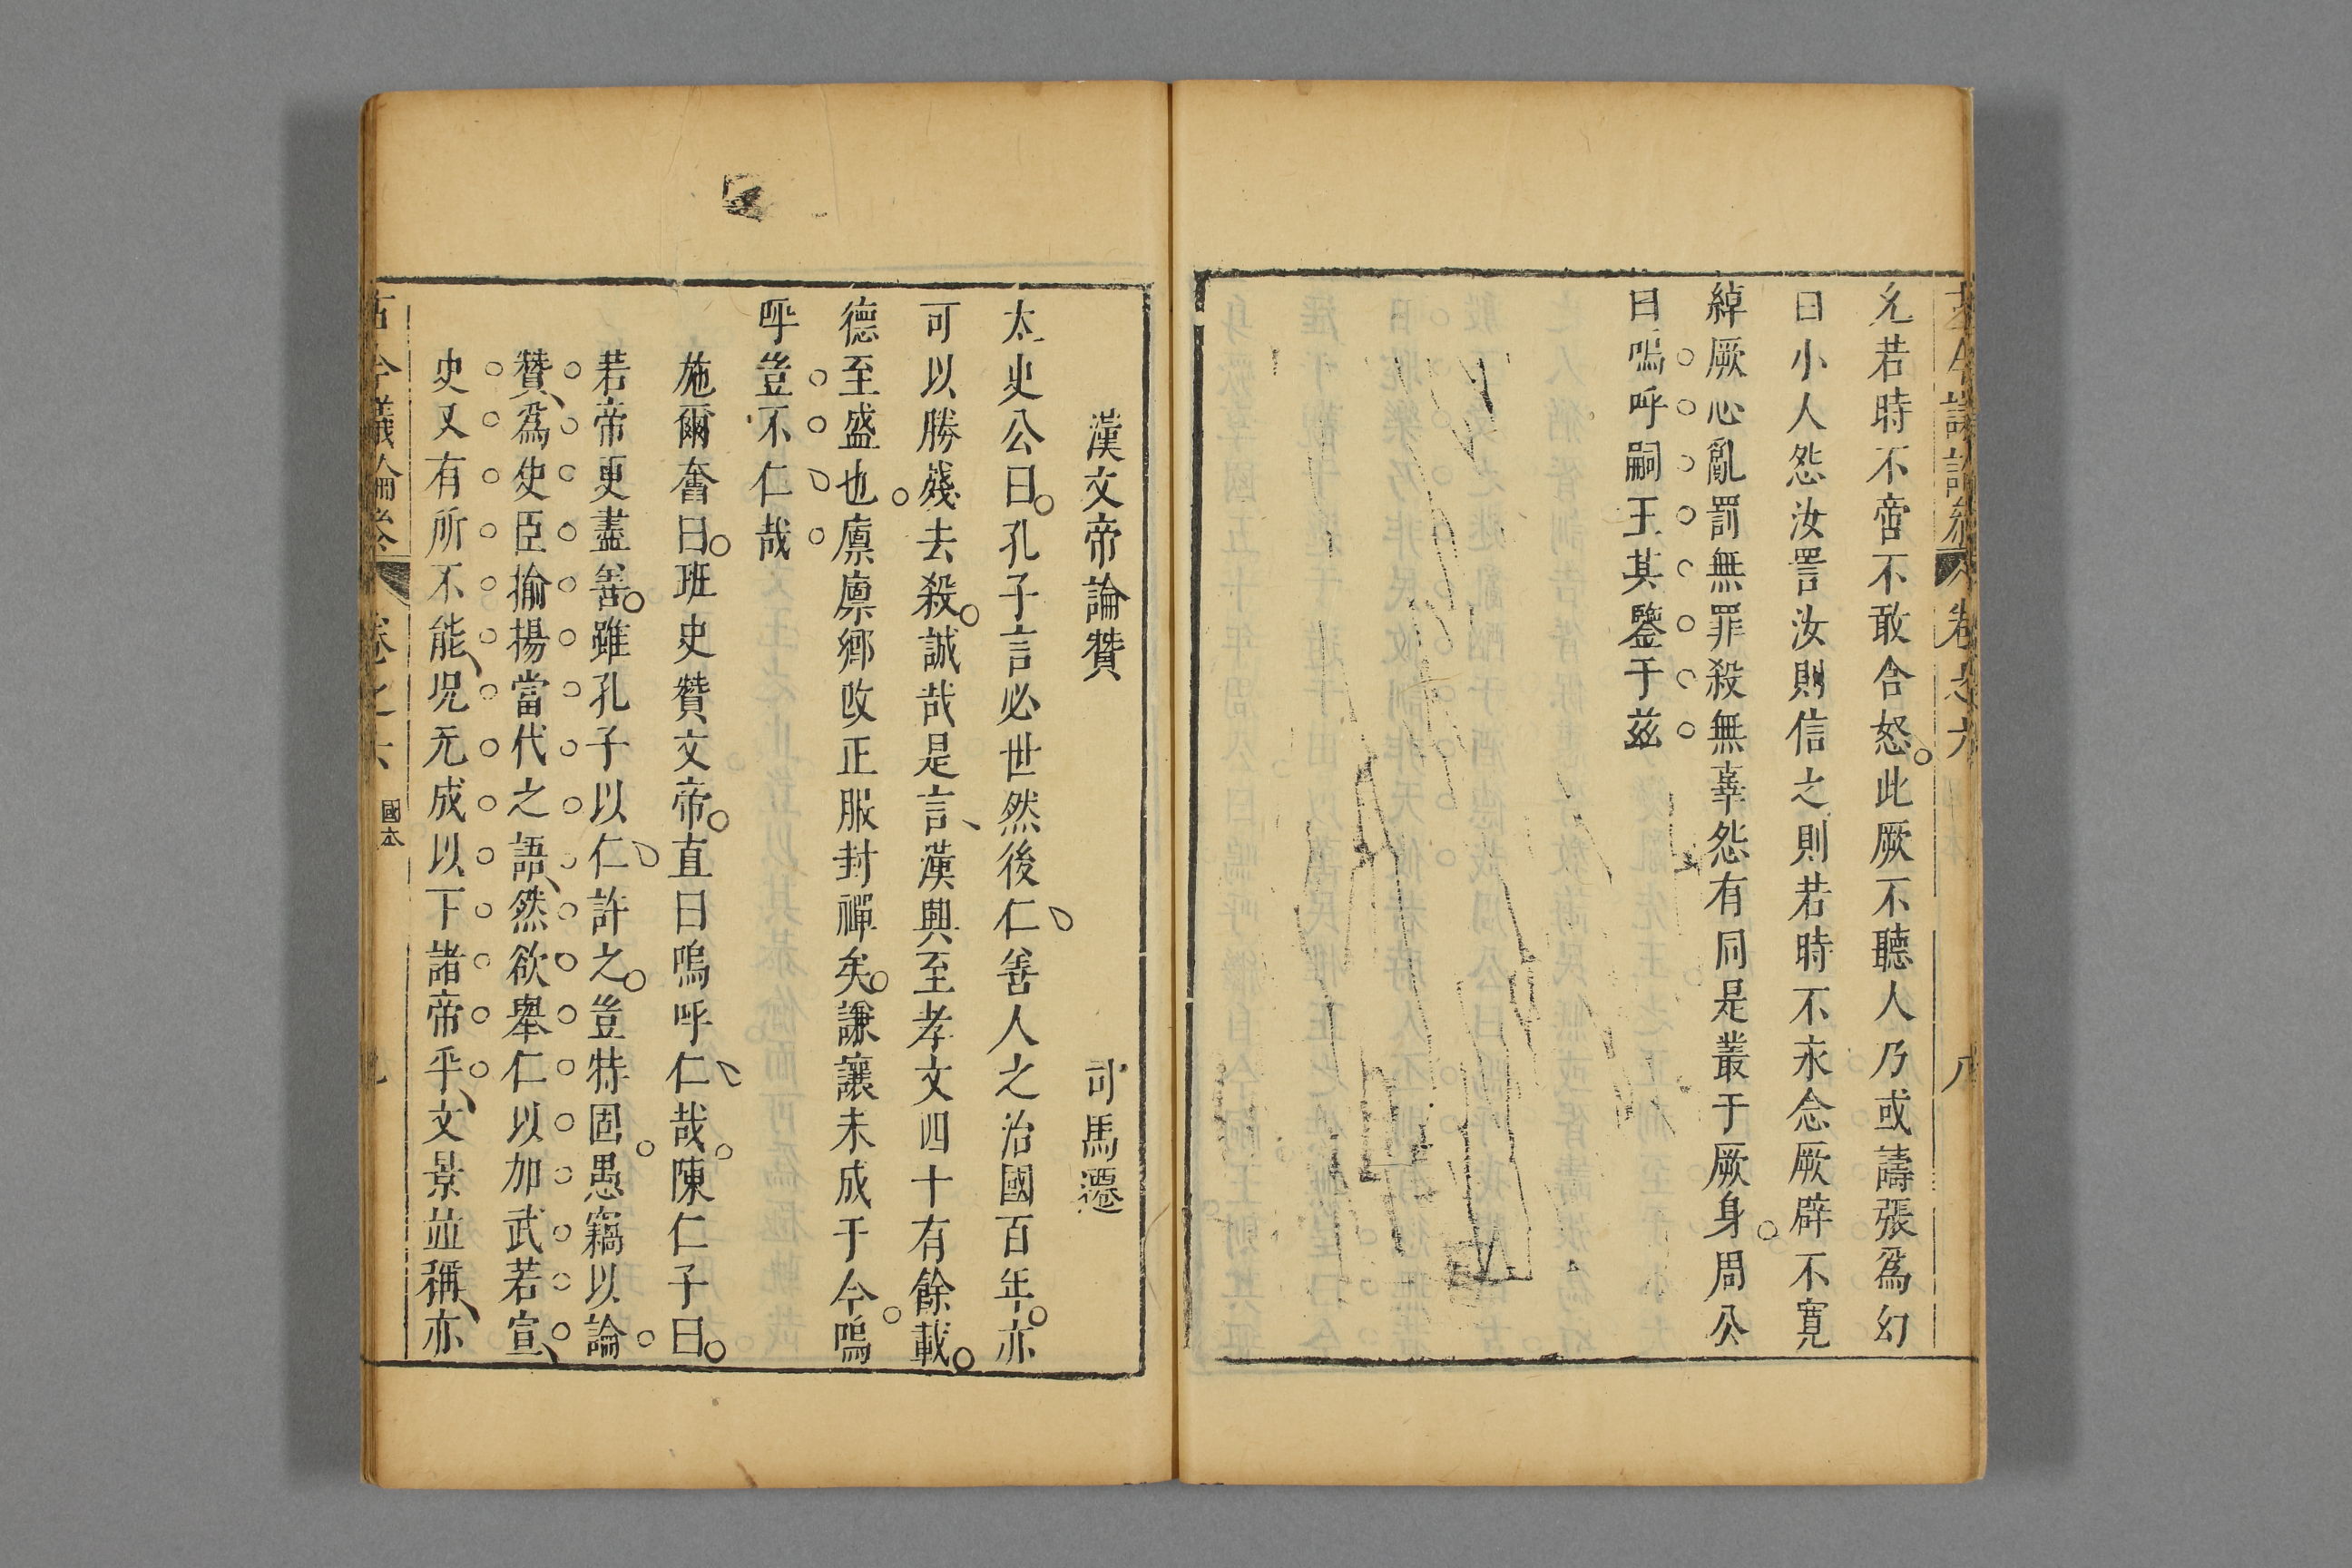 允若時不啻不敢含怒此厥不聽人乃或譸張爲幻
曰小人怨汝詈汝則信之則若時不永念厥辟不寬
綽厥心亂罰無罪殺無辜怨有同是叢于厥身周公
曰嗚呼嗣王其鑒于兹
漢文帝論贊 司馬遷
太史公曰孔子言必世然後仁善人之治國百年亦
可以勝殘去殺誠哉是言漢興至孝文四十有餘載
德至盛也廪廪鄉改正服封禪矣謙讓未成于今嗚
呼豈不仁哉
施爾奮曰班史贊文帝直曰嗚呼仁哉陳仁子曰
若帝更盡善雖孔子以仁許之豈特固愚竊以論
贊爲史臣揄揚當代之語然欲舉仁以加武若宣
史又有所不能況元成以下諸帝乎文景並稱亦
古今議論參 卷之六 國本